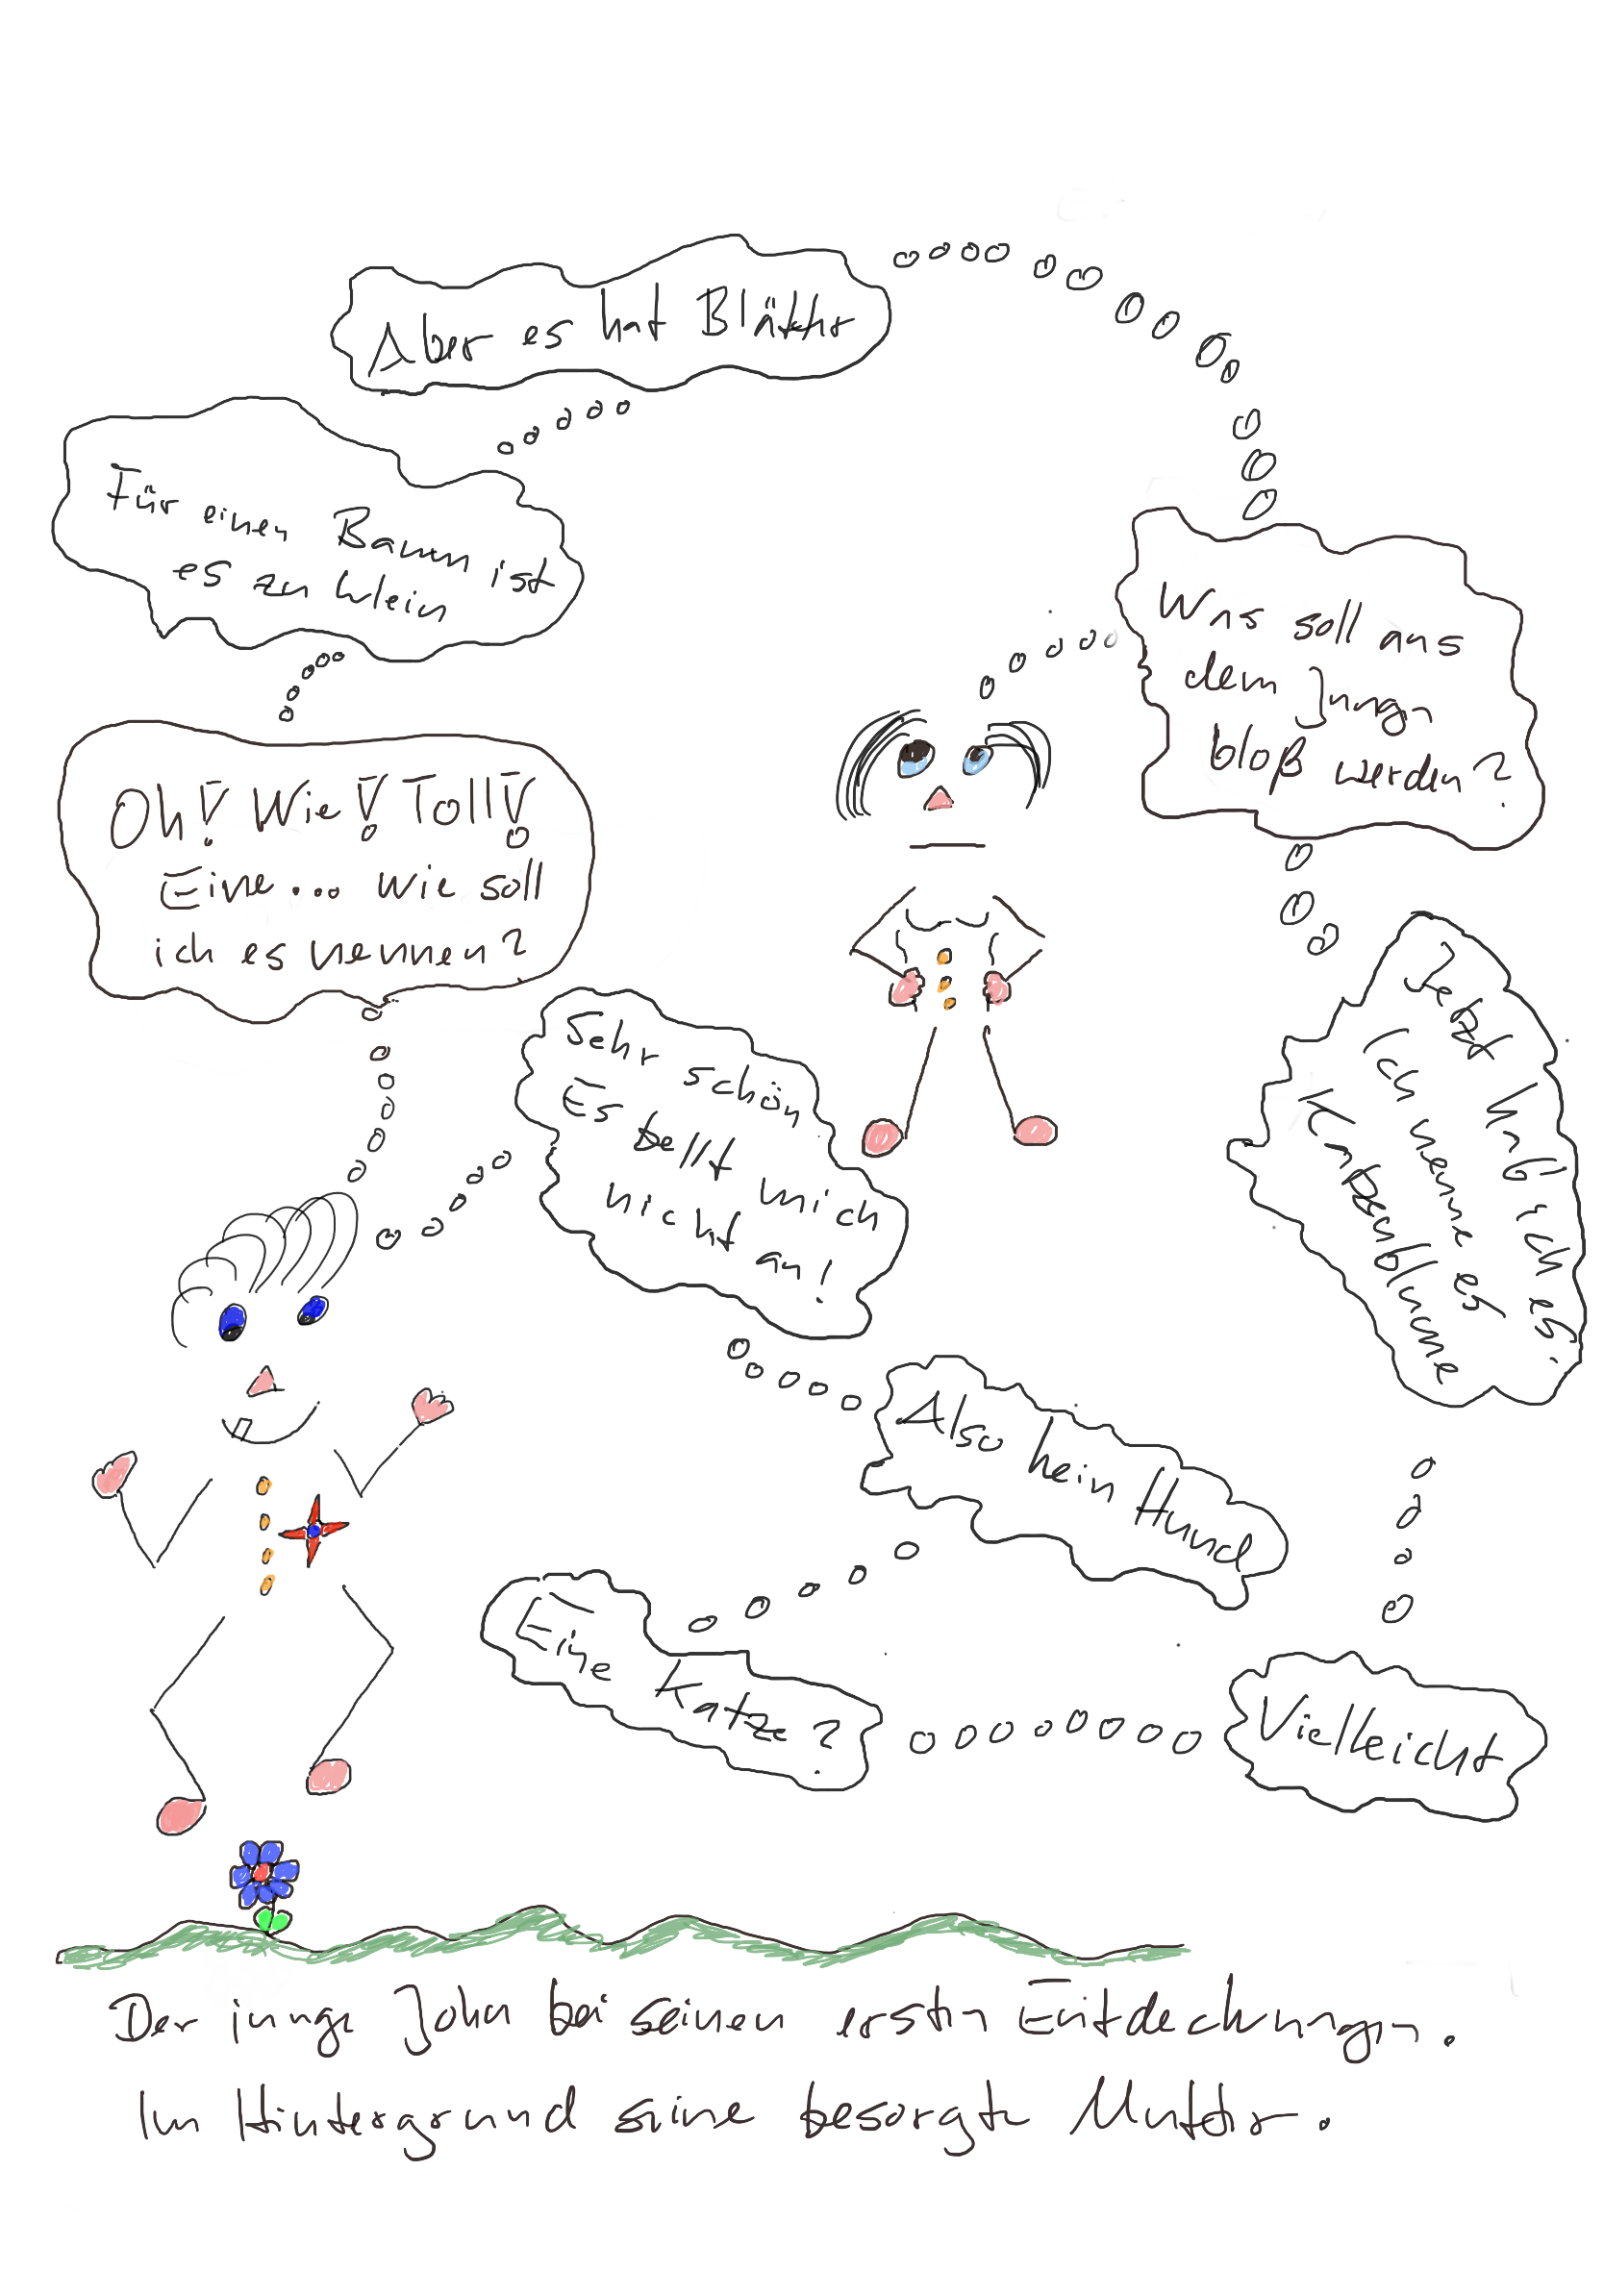 Oh! Wie! Toll!
Eine... wie soll
ich es nennen?
Für einen Baum ist
es zu klein
Aber es hat Blätter
Was soll aus
dem Jungen
bloß werden?
Sehr schön
Es bellt mich
nicht an!
Also kein Hund
Eine Katze?
Vielleicht
Jetzt hab ich es.
Ich nenne es
Katzenblume
Der junge John bei seinen ersten Entdeckungen.
Im Hintergrund seine besorgte Mutter.